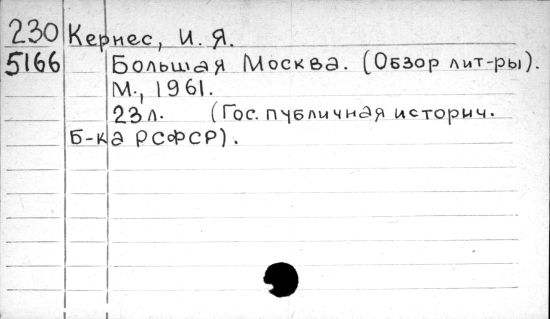 230 Кернес, И. Я.
5166 Большая Москва. (Обзор лит-ры).
М., 1961.
23 л. (Гос. публичная историч.
б-ка РСФСР).